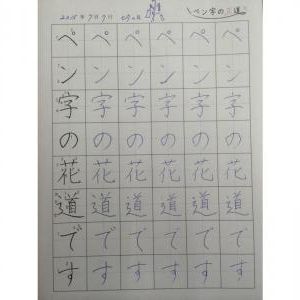 2015年7月7日 七夕の日
ペン字の
ペン字の花道です
ペン字の花道です
ペン字の花道です
ペン字の花道です
ペン字の花道です
ペン字の花道です